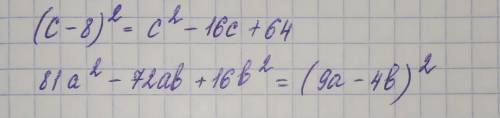 (c-8)² = c² - 16c + 64
81a² - 72ab + 16b² = (9a - 4b)²